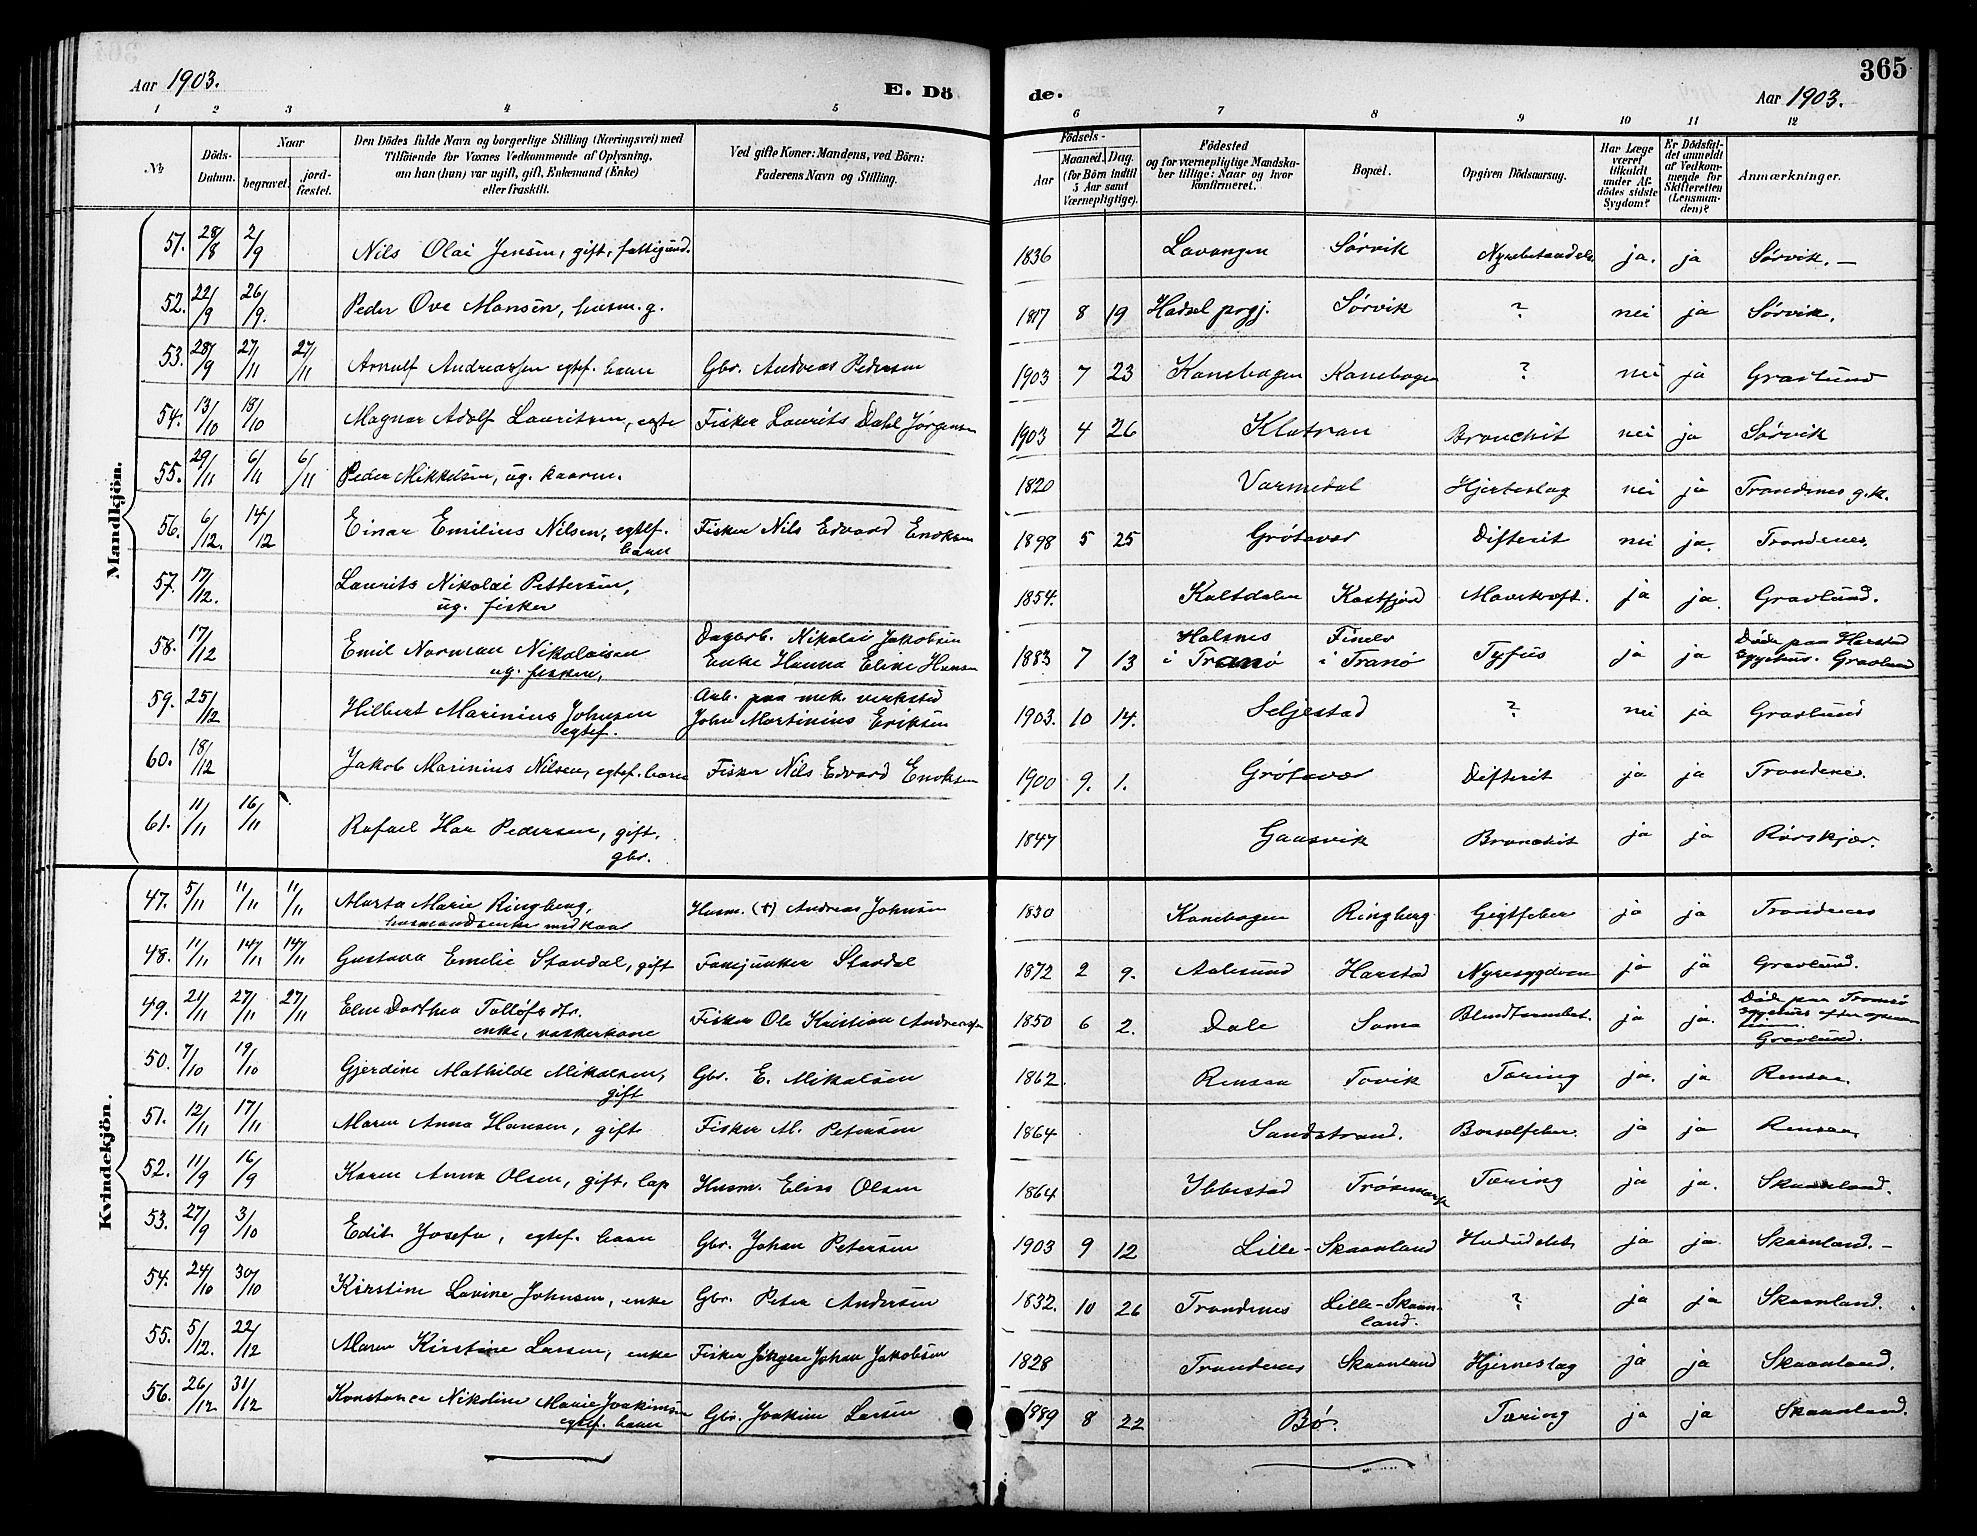 Aar 1903.
E. Dö
de.
Aar 1903.
365
1 2 3 4 5 6 7 8 9 10 11 12
No
Döds-Datum.
Naar
begravet.
jord-fæstet.
Den Dödes fulde Navn og borgerlige Stilling (Næringsvei) med
Tilföiende for Voxnes Vedkommende af Oplysning,
om han (hun) var ugift, gift, Enkemand (Enke)
eller fraskilt.
Ved gifte Koner: Mandens, ved Börn:
Faderens Navn og Stilling.
Födsels-
Aar
Maaned. Dag.
(for Börn indtil
5 Aar samt
Værnepligtige).
Födested
og for værnepligtige Mandska-
ber tillige: Naar og hvor
konfirmeret.
Bopæl.
Opgiven Dödsaarsag.
Har Læge
været
tilkaldt
under Af-
dödes sidste
Sygdom?
Er Dödsfal-
det anmeldt
af Vedkom-
mende for
Skifteretten
(Lensman-
den)?
Anmærkninger.
Mandkjön.
51. 28/8 2/9 Nils Olai Jensen, gift, fattigund. 1836 Lavangen Sørvik ja. ja Sørvik. —
52. 22/9 26/9. Peder Ove Hansen, husm. g. 1817 8 19 Hadsel prgj. Sørvik ? nei ja Sørvik.
53. 28/9 27/11 27/11 Arnulf Andreassen egtef. barn Gbr. Andreas Pedersen 1903 7 23 Kanebogen Kanebogen ? nei ja Gravlund
54. 13/10 18/10 Magnar Adolf Lauritsen, egte Fisker Laurits Dahl Jørgensen 1903 4 26 Klatran Bronchit nei ja Sørvik
55. 29/11 6/11 6/11 Peder Mikkelsen, ug. kaarm. 1820 Varmedal Hjerteslag nei ja Trondenes g.k.
56. 6/12. 14/12 Einar Emilius Nilsen, egtef. barn Fisker Nils Edvard Enoksen 1898 5 25 Grøtavær Difterit nei ja. Trondenes.
57. 17/12. Laurits Nikolai Pettersen, ug. fisker 1854. Kaltdalen Kastfjord Mavekræft. ja ja. Gravlund.
58. 17/12 Emil Norman Nikolaisen ug. fisker, Dagarb. Nikolai Jakobsen Enke Hanna Eline Hansen 1883 7 13 Halsnes i Tranø i Tranø Tyfus ja ja Døde paa Harstad sygehus. Gravlund
59. 25/12 Hilbert Marinius Johnsen egtef. Arb. paa mek. verksted John Martinius Eriksen 1903. 10 14. Seljestad ? nei ja Gravlund
60. 18/12 Jakob Marinius Nilsen, egtef. barn Fisker Nils Edvard Enoksen 1900 9. 1. Grøtavær Difterit ja ja Trondenes.
61. 11/11 16/11 Rafael Hor Pedersen, gift, gbr. 1847 Gausvik Bronchit ja ja Rørskjær.
Kvindekjön.
47. 5/11 11/11 11/11 Marta Marie Ringberg, husmandsenke med kaar Husm. (†) Andreas Johnsen 1830 Kanebogen Ringberg Gigtfeber ja ja Trondenes
48. 11/11 14/11 14/11 Gustava Emelie Stordal, gift Fanejunker Stordal 1872 2 9. Aalesund Harstad Nyresygdom ja ja Gravlund.
49. 21/11 27/11 27/11 Elen Dorthea Tollefsdtr. enke, vaskerkone Fisker Ole Kristian Andreassen 1850 6 2. Dale Sama Blindtarmbet. ja ja. Døde paa Tromsø sygehus efter operation. Gravlund.
50. 7/10 19/10 Gjerdine Mathilde Mikalsen, gift Gbr. E. Mikalsen 1862. Rensaa Tovik Tæring ja. ja Rensaa.
51. 12/11 17/11 Maren Anna Hansen, gift Fisker M. Petersen 1864 Sandstrand. Barselfeber. ja ja Rensaa.
52. 11/9 16/9 Karen Anna Olsen, gift, lap Husm. Elias Olsen 1864 Ibbestad Trøsemark Tæring ja ja. Skaanland.
53. 27/9 3/10 Edit Josefa, egtef. barn Gbr. Johan Petersen 1903 9 12 Lille-Skaanland ja ja. Skaanland. —
54. 24/10 30/10 Kirstine Lovine Johnsen, enke Gbr. Peter Andersen 1832. 10 26 Trondenes Lille-Skaanland. ? ja ja Skaanland.
55. 5/12. 22/12 Maren Kirstine Larsen, enke Fisker Jørgen Johan Jakobsen 1828 Trondenes Skaanland Hjerneslag ja ja Skaanland.
56. 26/12 31/12 Konstance Nikoline Marie Joakimsen egtef. barn Gbr. Joakim Larsen 1889 8 22 Bø. Tæring ja ja Skaanland.